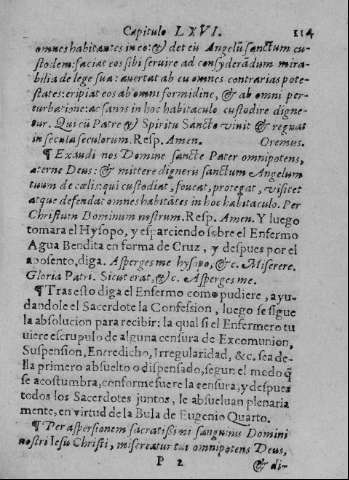 Capitulo LXVI. 114
omnes habitantes in eo: & det eū Angelū sanctum cu-
stodem: faciat eos sibi seruire ad consyderādum mira-
bilia de lege sua: auertat ab eis omnes contrarias pote-
states: eripiat eos ab omni formidine, & ab omni per-
turbatione: ac sanos in hoc habitaculo custodire digne-
tur. Qui cū Patre & Spiritu Sancto viuit & regnat
in secula seculorum. Resp. Amen. Oremus.
¶ Exaudi nos Domine sancte Pater omnipotens,
æterne Deus: & mittere digneris sanctum Angelum
tuum de cœlis: qui custodiat, foueat, protegat, visitet
atque defendat omnes habitātes in hoc habitaculo. Per
Christum Dominum nostrum. Resp. Amen. Y luego
tomara el Hysopo, y esparciendo sobre el Enfermo
Agua Bendita en forma de Cruz, y despues por el
aposento, diga. Asperges me hysopo, &c. Miserere.
Gloria Patri. Sicut erat, &c. Asperges me.
¶ Tras esto diga el Enfermo como pudiere, ayu-
dandole el Sacerdote la Confession, luego se sigue
la absolucion para recibir: la qual si el Enfermo tu
uiere escrupulo de alguna censura de Excomunion,
Suspension, Entredicho, Irregularidad, &c. sea de-
lla primero absuelto o dispensado, segun el modo q̃
se acostumbra, conforme fuere la censura: y despues
todos los Sacerdotes juntos, le absueluan plenaria
mente, en virtud de la Bula de Eugenio Quarto.
¶ Per aspersionem sacratissimi sanguinis Domini
nostri Iesu Christi, misereatur tui omnipotens Deus,
P 2 & di-